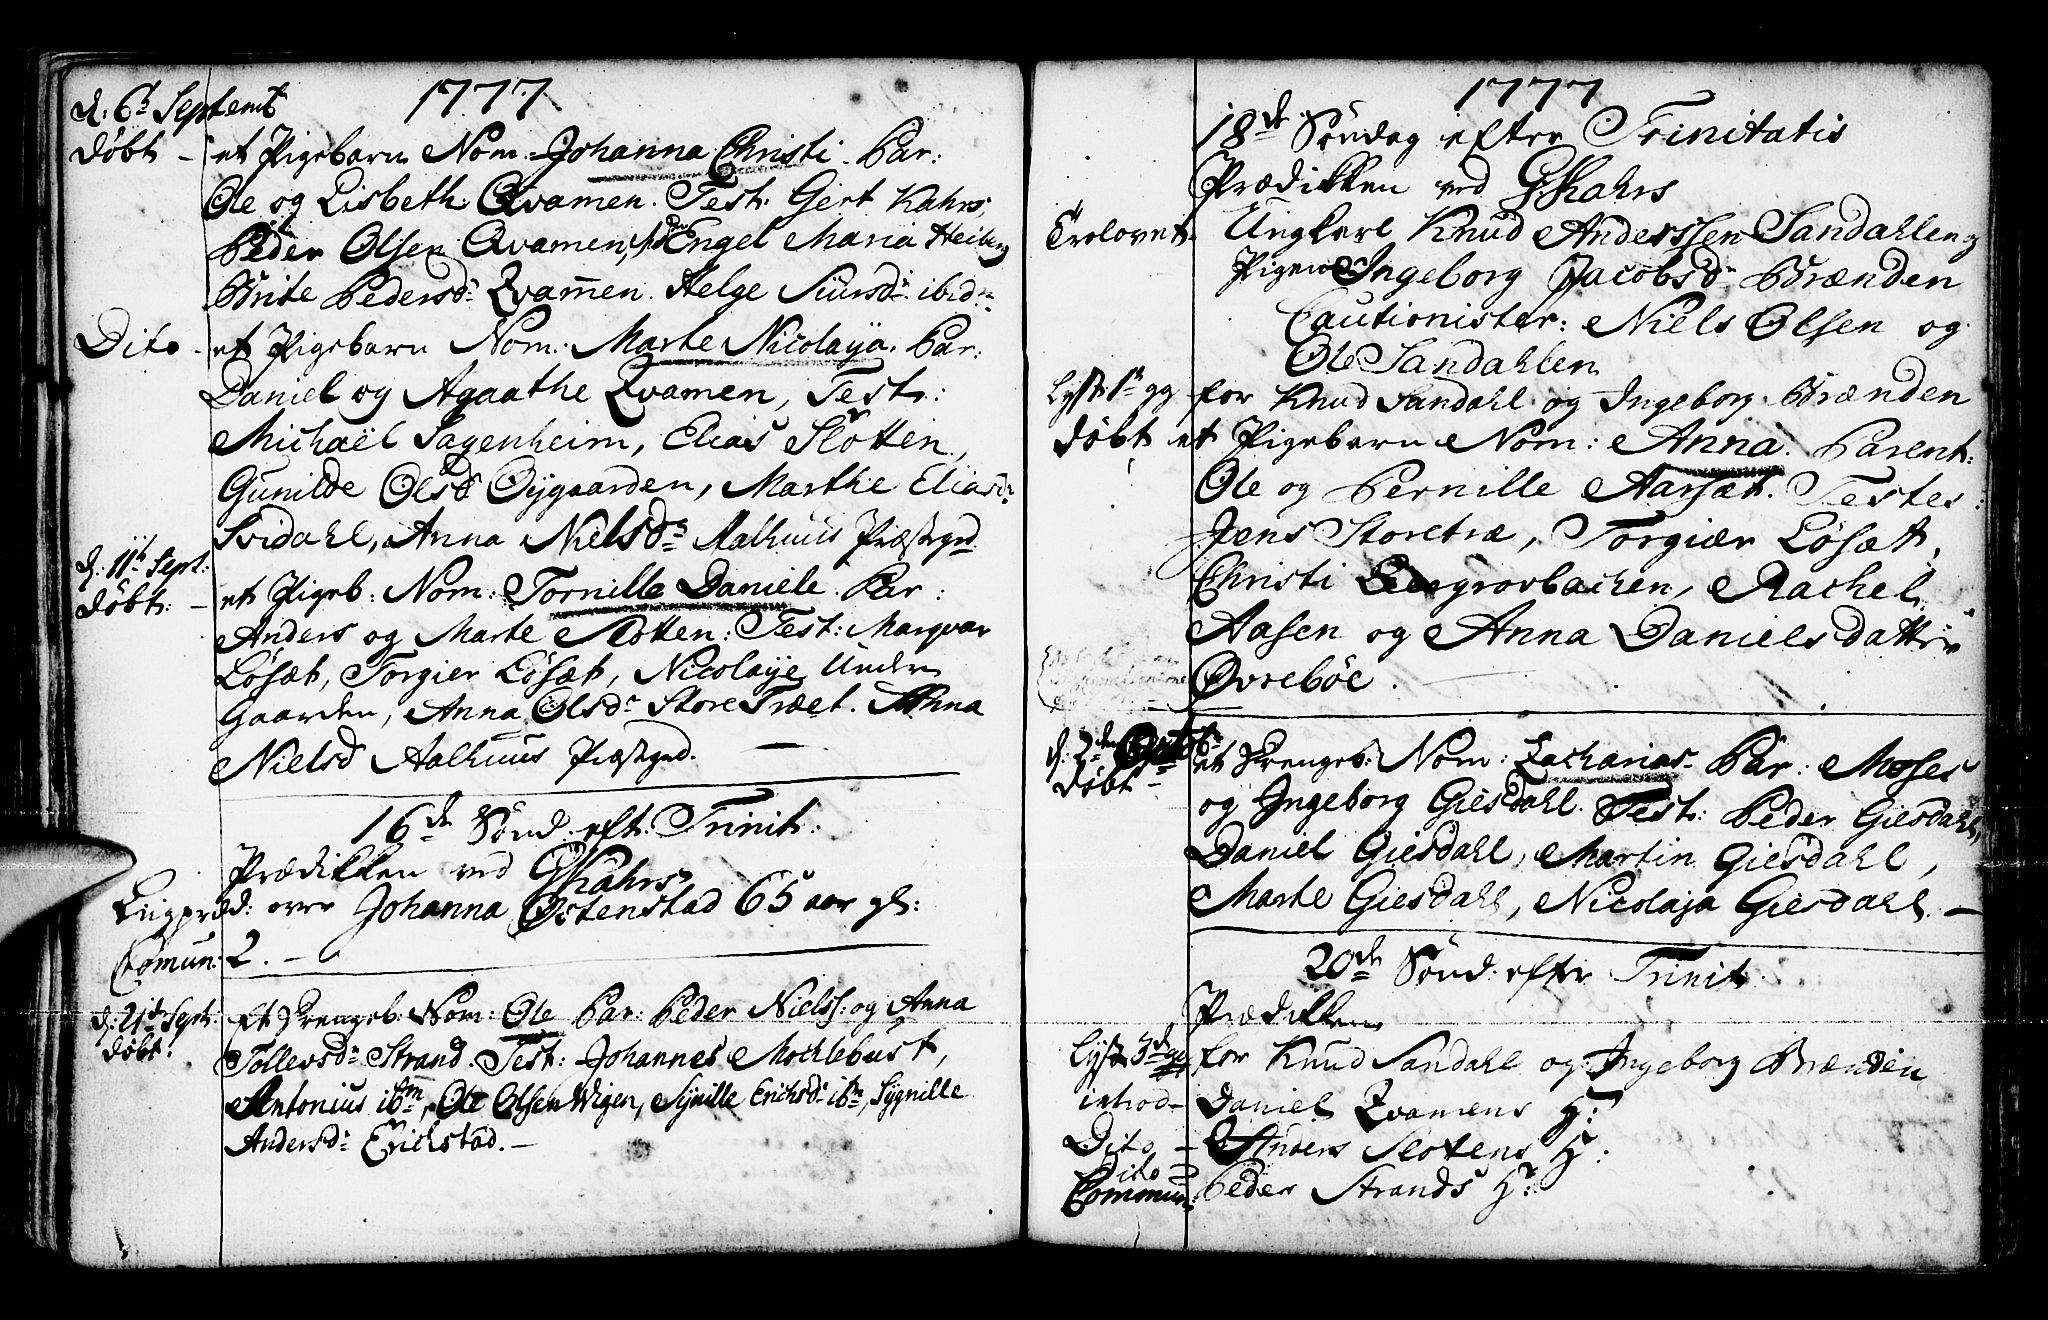 1777
d: 6te Septemb
døbt – et Pigebarn Nom: Johanna Christi. Par:
Ole og Lisbeth Qvamen. Test: Gert Kahrs,
Peder Olsen Qvamen, Engel Maria Heiberg
Brite Pedersd: Qvamen. Helge Siursd: ibid:
Dito – et Pigebarn Nom: Marte Nicolaija. Par:
Daniel og Agaathe Qvamen, Test:
Michaël Sagenheim, Elias Slotten,
Gunilde Olsd Oÿgaarden, Marthe Eliasd:
Svidahl, Anna Nielsd: Aalhuus Præstegrd.
d: 11te Sept:
døbt: – et Pigeb: Nom: Tornille Daniele. Par:
Anders og Marte Slotten: Test: Marqvar
Løsæt, Torgier Løsæt, Nicolaije Under
Gaarden, Anna Olsd: Store Træet. Anna
Nielsd Aalhuus Præstegrd. –
16de Sønd: eft: Trinit:
Prædikken ved GKahrs
Liigpræd: over Johanna Østenstad 65 aar gl:
Comun: 2. –
d: 21de Sept: Et Drengeb: Nom: Ole Par: Peder Nielss: og Anna
døbt: Tollevsd: Strand. Test: Johannes Mochlebust,
Antonius ibm, Ole Olsen Wigen, Sÿnille Erichsd: ibm, Sygnille
Andersd: Erichstad. –
1777
18de Søndag efter Trinitatis
Prædikken ved GKahrs
Trolovet. Ungkarl Knud Anderssen Sandahlen og
Pigen Ingeborg Jacobsd: Brænden
Cautionister: Niels Olsen og
Ole Sandahlen
Lyst 1te gg for Knud Sandahl og Ingeborg Brænden
døbt et Pigebarn Nom: Anna. Parent:
Ole og Pernille Aarsæt. Testes:
Jens Storetræ, Torgier Løsæt,
Christi Leegrovbachen, Rachel
Aasen og Anna Danielsdatter
Øvrebøe.
d: 2den Octbr
døbt – et Drengeb: Nom: Zacharias Par: Moses
og Ingeborg Giesdahl. Test: Peder Giesdahl,
Daniel Giesdahl, Martin Giesdahl,
Marte Giesdahl, Nicolaja Giesdahl. –
20de Sønd: efter Trinit
Prædikken
Lyst 3de gg for Knud Sandahl og Ingeborg Brænden
introd – Daniel Qvamens H:
Dito – Anders Slotens H:
Dito Peder Strands H:
Commun: